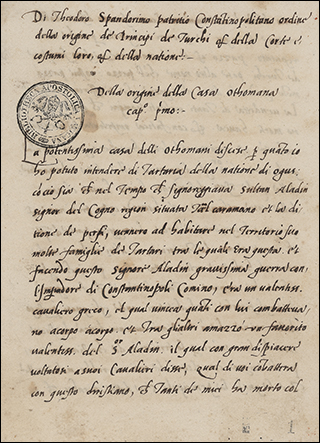 Di Theodoro Spandorino patritio Constantinopolitano ordine
della origine de Principi de Turchi et della Corte e
costumi loro, et della natione:-
Della origine della Casa Othomana
cap.º p̃mo:-
BIBLIOTECA APOSTOLICA
a potentissima casa delle othomani discese p quato io
ho potuto intendere di Tartaria della natione di ogus
cio sia che nel Tempo che signoreggiava sultan Aladin
signor del Cogno region situata Tral caramano et la di
tione de persi, vennero ad habitare nel Territorio suo
molte famiglie de Tartari tra le quale era questa et
facendo questo Signore Aladin gravissima guerra con
l'Imp̃adore di Constantinopoli Comino, era un valentiss.
cavaliero greco, il qual vinceva quāti con lui combatteva,
no acorpo acorpo, et Tra gli altri amazzo un favorito
valentiss. del S.or Aladin. il qual con gran dispiacere
voltatosi a suoi Cavalieri disse, qual di voi cōbattera
con questo christiano, che Tanti de miei ha morto col